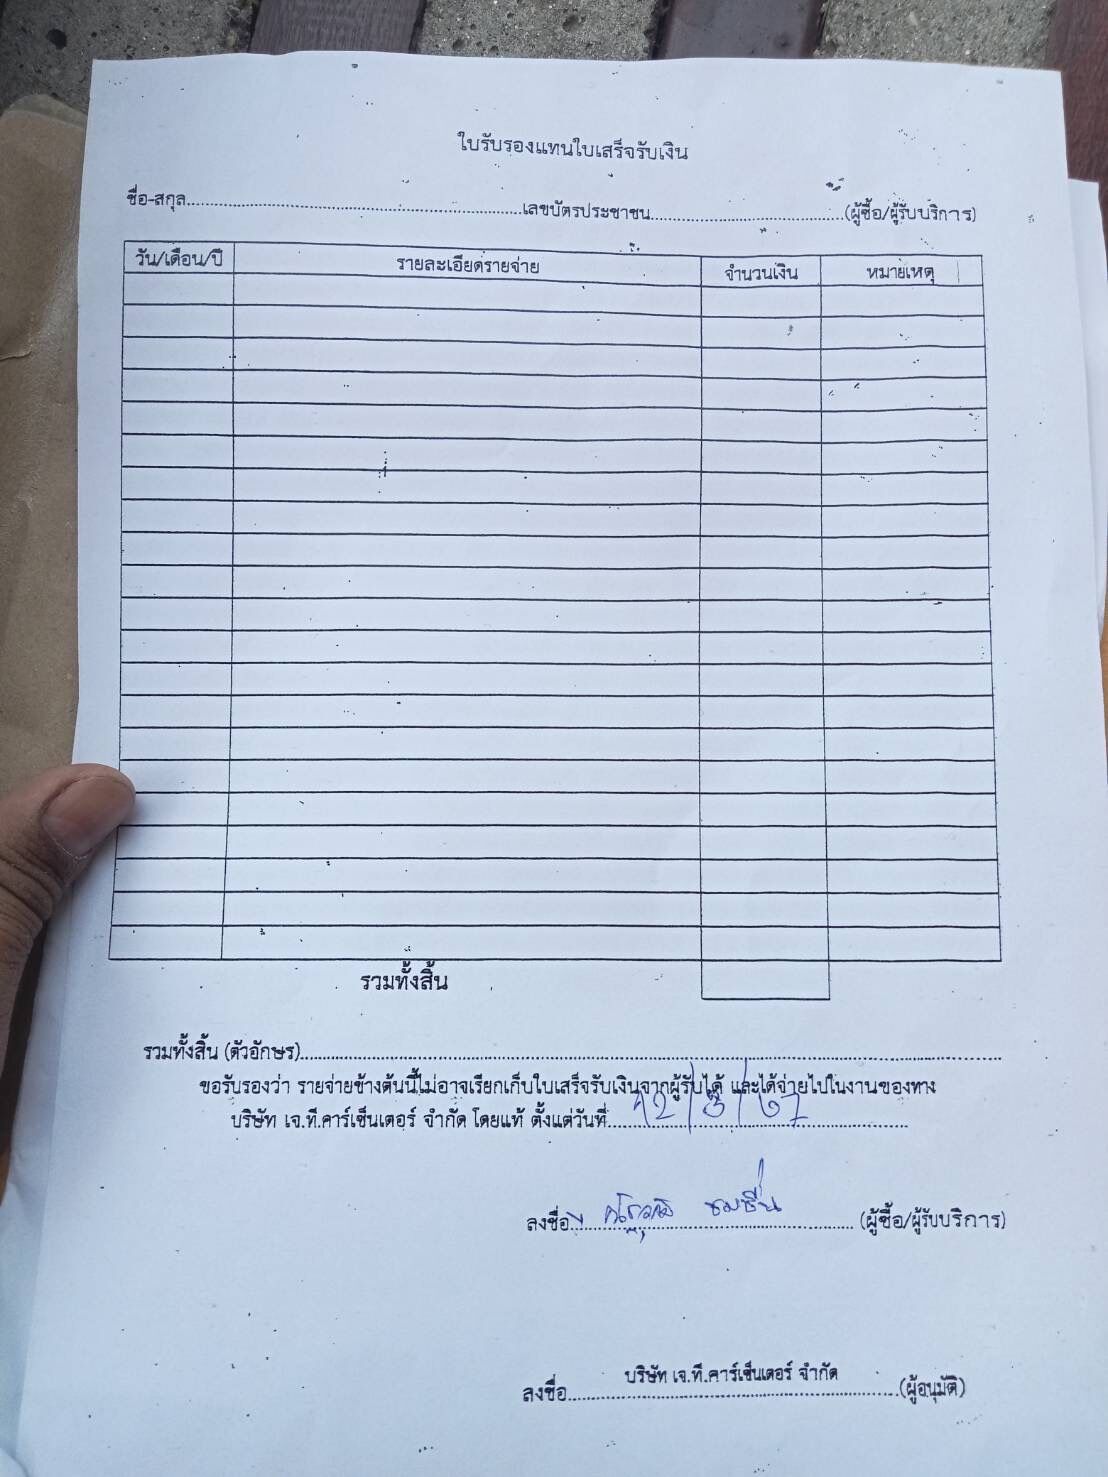 ใบรับรองแทนใบเสร็จรับเงิน
ชื่อ-สกุล................................................เลขบัตรประชาชน................................(ผู้ซื้อ/ผู้รับบริการ)
วัน/เดือน/ปี รายละเอียดรายจ่าย จำนวนเงิน หมายเหตุ
รวมทั้งสิ้น
รวมทั้งสิ้น (ตัวอักษร)................................................................
ขอรับรองว่า รายจ่ายข้างต้นนี้ไม่อาจเรียกเก็บใบเสร็จรับเงินจากผู้รับได้ และได้จ่ายไปในงานของทาง
บริษัท เจ.ที.คาร์เซ็นเตอร์ จำกัด โดยแท้ ตั้งแต่วันที่ 12/3/67
ลงชื่อ ชมชื่น (ผู้ซื้อ/ผู้รับบริการ)
บริษัท เจ.ที.คาร์เซ็นเตอร์ จำกัด
ลงชื่อ................................................(ผู้อนุมัติ)